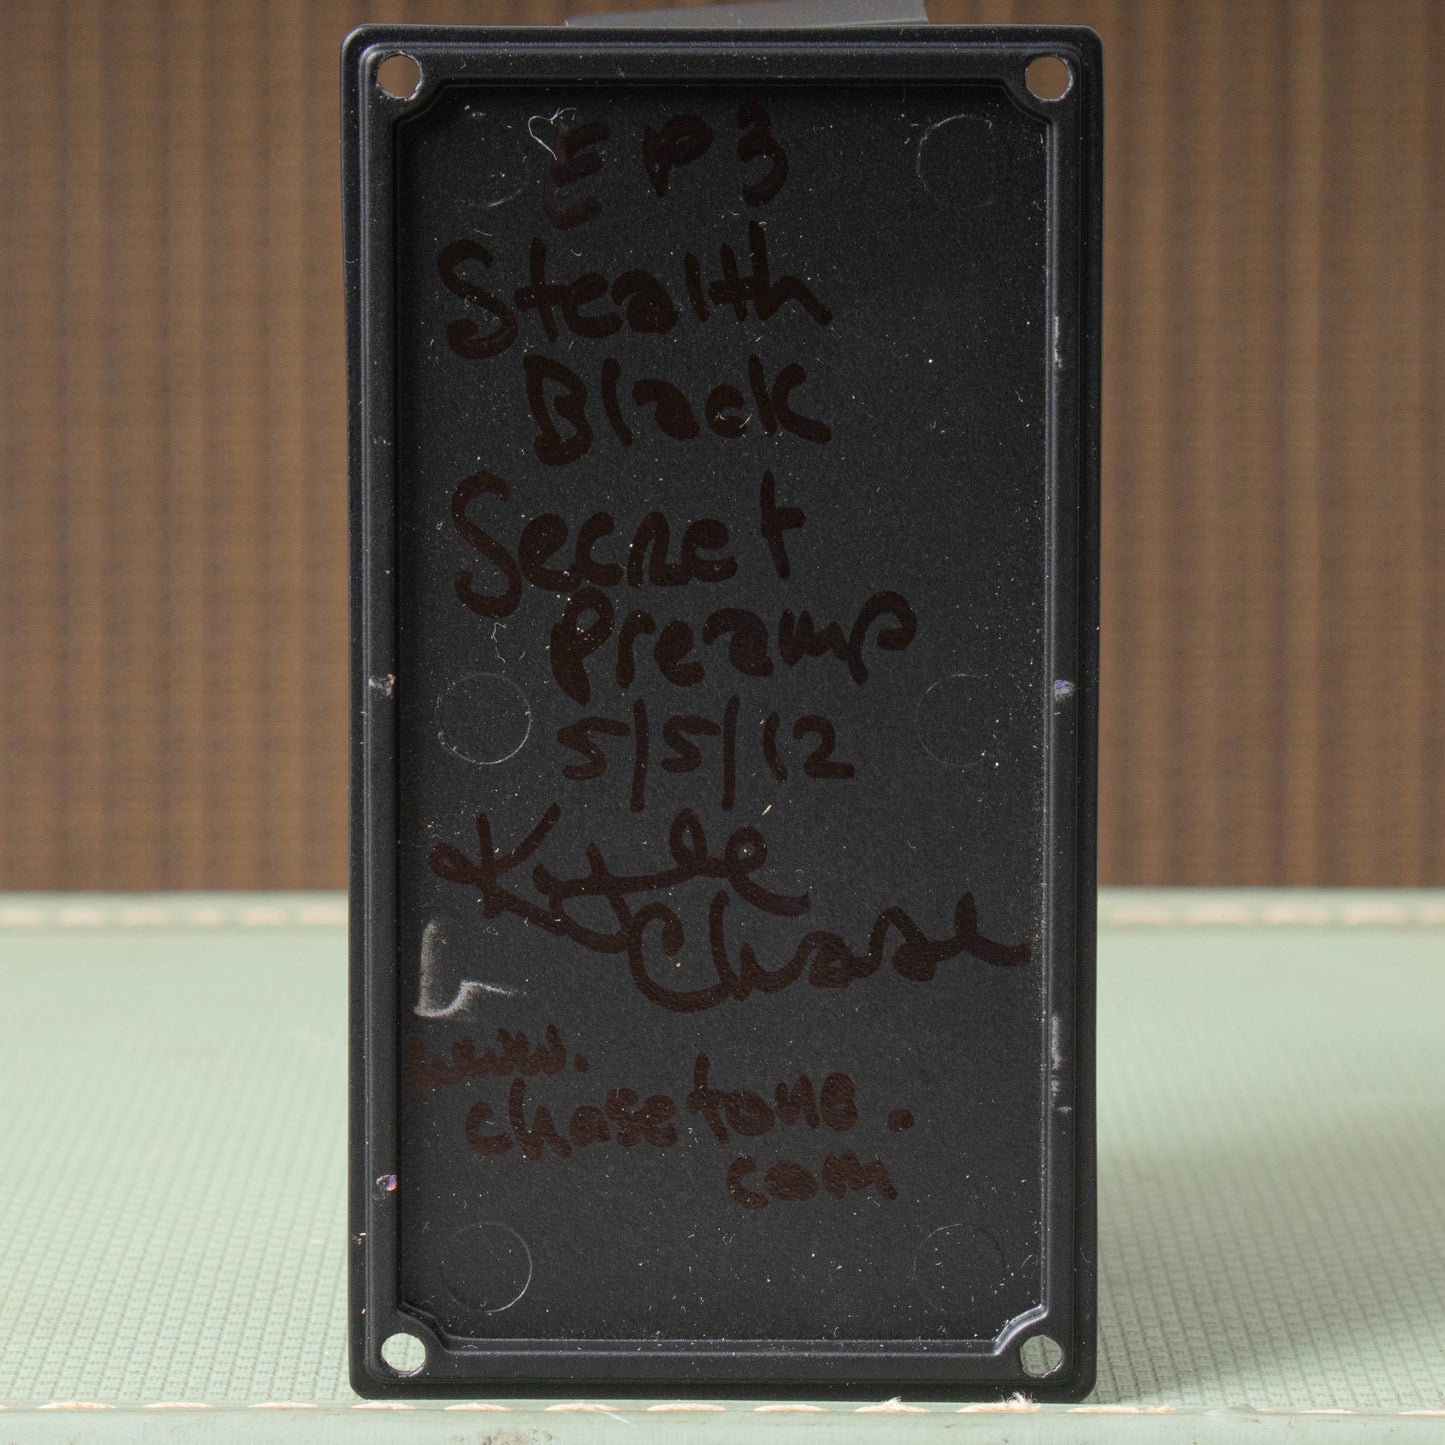 EP3
Stealth
Black
Secret
Preamp
5/5/12
Kyle
Chase
www.
chasetone.
com